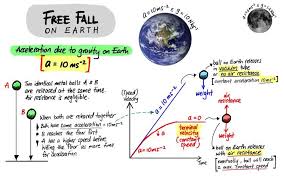 FREE FALL
ON EARTH
Acceleration due to gravity on Earth
a = 10 ms⁻²
Two identical metal balls A & B
are released at the same time.
Air resistance is negligible.
A
B
When both are released together
• Both have same acceleration = 10ms⁻²
• B reaches the floor first
• A has a higher speed before
hitting the floor as more time
for acceleration
(Speed)
velocity
a = 10 ms⁻²
a = 0
terminal
velocity
(constant
speed)
time
ball on Earth released
in vacuum tube
no air resistance
constant acceleration 10ms⁻²
weight
air
resistance
weight
ball on Earth released
with air resistance
eventually, ball will reach
a max constant speed